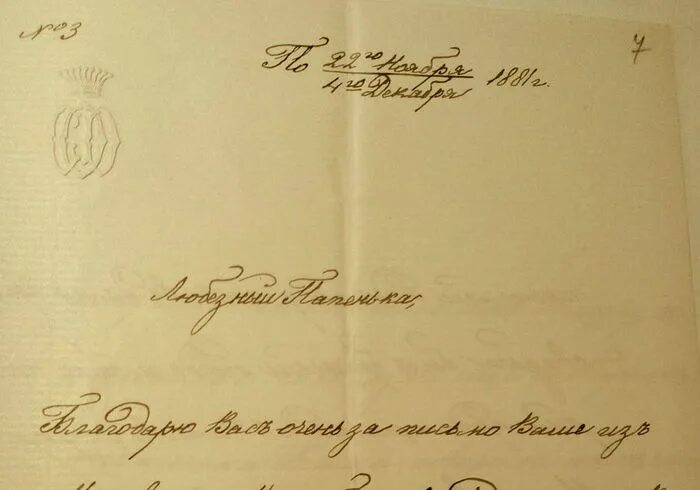 №3
7
По 22го Ноября
4го Декабря 1881г.
Любезный Папенька,
Благодарю Васъ очень за письмо Ваше изъ